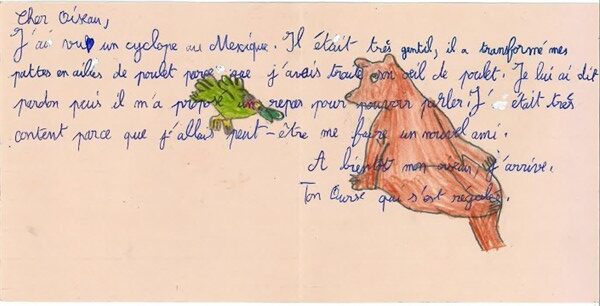 Cher Oiseau,
J'ai vu un cyclope au Mexique. Il était très gentil, il a transformé mes
pattes en ailes de poulet parce que j'avais traité son oeil de poulet. Je lui ai dit
pardon puis il m'a proposé un repas pour pouvoir parler. J' était très
content parce que j'allais peut-être me faire un nouvel ami.
A bientôt mon oiseau, j'arrive.
Ton Ourse qui s'est régalée.